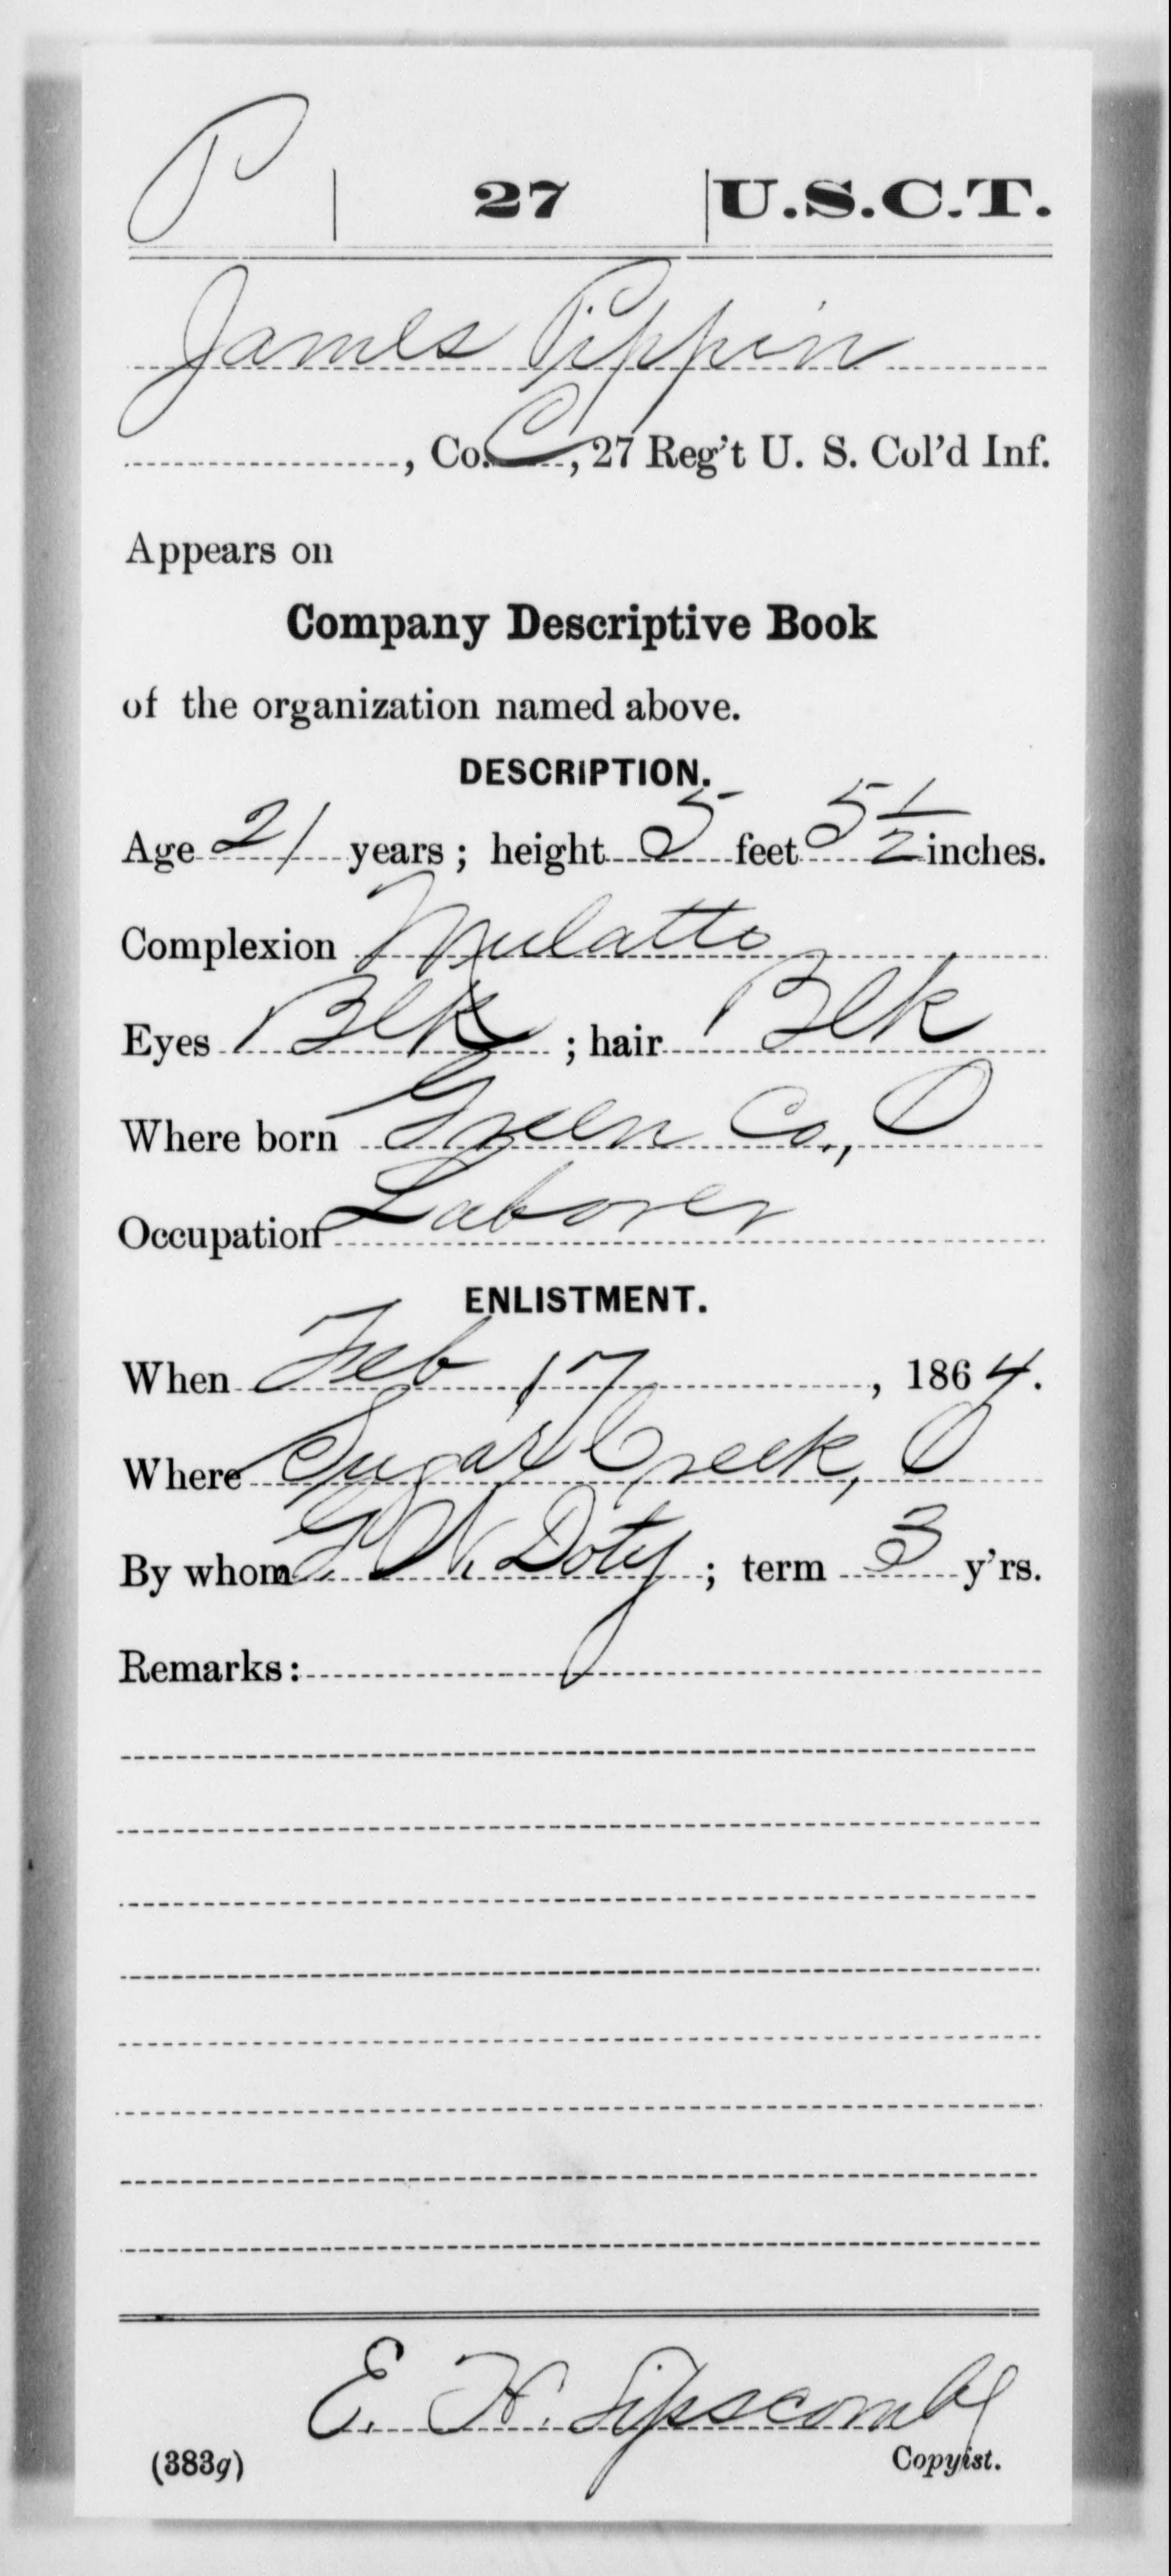 P | 27 | U.S.C.T.
James Pippin
, Co. C, 27 Reg't U. S. Col'd Inf.
Appears on
Company Descriptive Book
of the organization named above.
DESCRIPTION.
Age 21 years; height 5 feet 5 1/2 inches.
Complexion Mulatto
Eyes Blk; hair Blk
Where born Green Co., O
Occupation Laborer
ENLISTMENT.
When Feb 17, 1864.
Where Sugar Creek, O
By whom G. W. Doty; term 3 y'rs.
Remarks:
E. H. Lipscomb
(383g) Copyist.